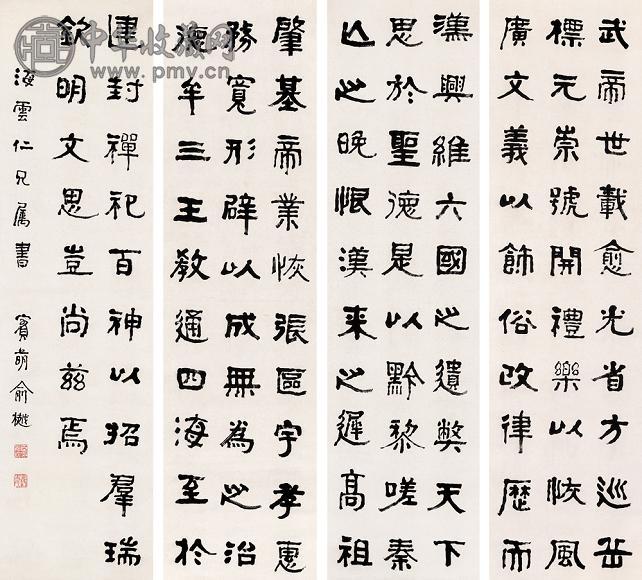 武帝世載愈光省方巡岳
標元崇號開禮樂以恢風
廣文義以飾俗改律歷而
漢興維六國之遺弊天下
思於聖德是以黔黎嗟秦
亡之晚恨漢來之遲高祖
肇基帝業恢張區宇孝惠
務寬形辟以成無為之治
德牟三王教通四海至於
建封禪祀百神以招羣瑞
欽明文思豈尚茲焉
海雲仁兄属書 賓萌俞樾
中华收藏网
www.pmy.cn